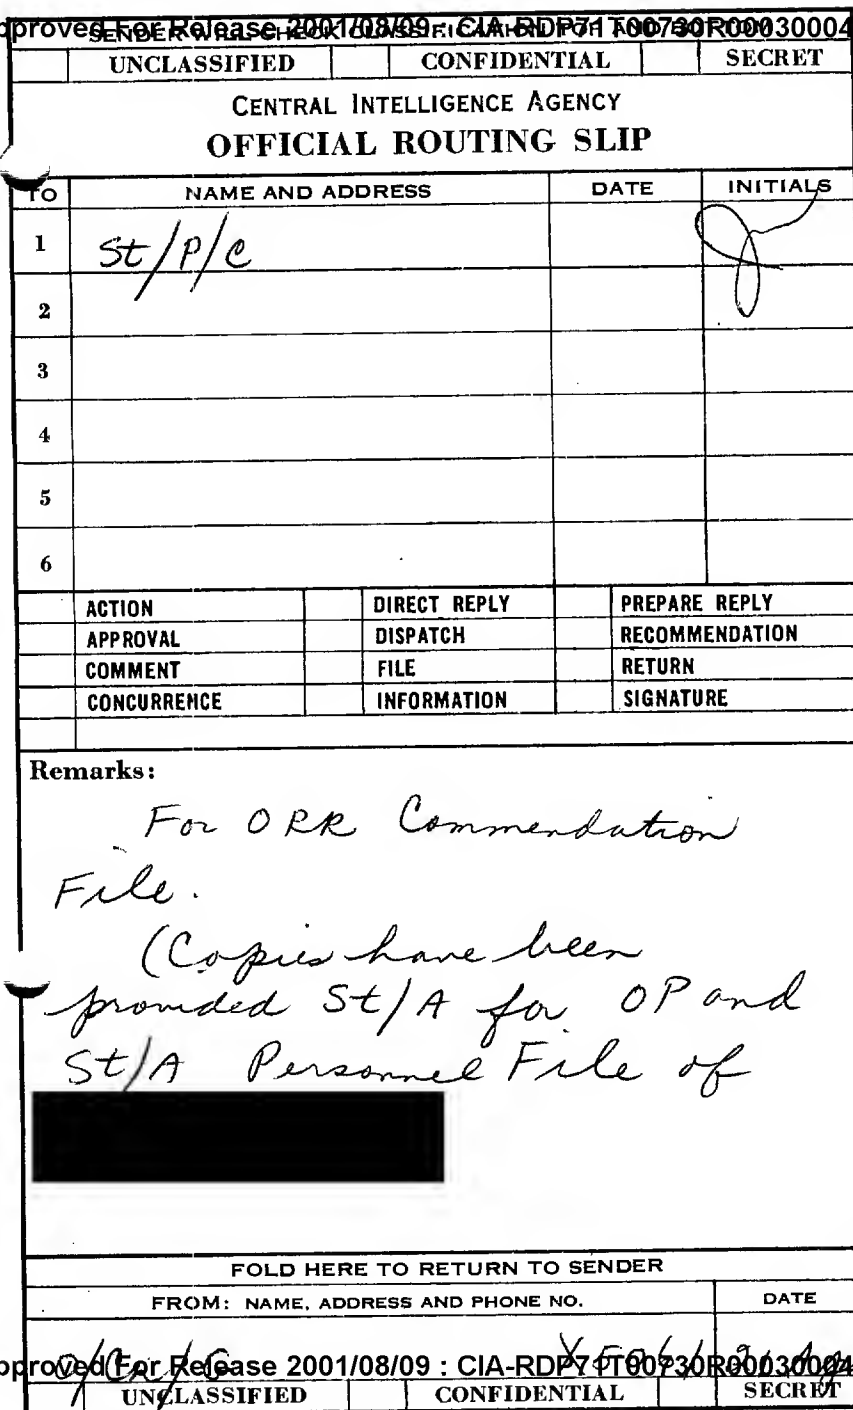 pproved For Release 2001/08/09 : CIA-RDP71T00730R00030004
SENDER WILL CHECK CLASSIFICATION TOP AND BOTTOM
UNCLASSIFIED CONFIDENTIAL SECRET
CENTRAL INTELLIGENCE AGENCY
OFFICIAL ROUTING SLIP
TO NAME AND ADDRESS DATE INITIALS
1 St/P/C
2
3
4
5
6
ACTION DIRECT REPLY PREPARE REPLY
APPROVAL DISPATCH RECOMMENDATION
COMMENT FILE RETURN
CONCURRENCE INFORMATION SIGNATURE
Remarks:
For ORR Commendation
File.
(Copies have been
provided St/A for OP and
St/A Personnel File of
FOLD HERE TO RETURN TO SENDER
FROM: NAME, ADDRESS AND PHONE NO. DATE
pproved For Release 2001/08/09 : CIA-RDP71T00730R00030004
UNCLASSIFIED CONFIDENTIAL SECRET